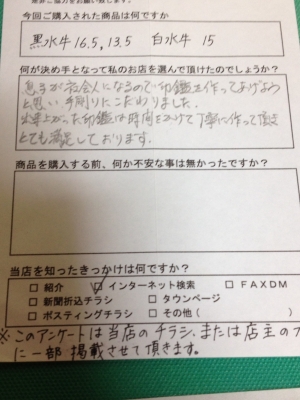 今回ご購入された商品は何ですか
黒水牛16.5, 13.5 白水牛 15
何が決め手となって私のお店を選んで頂けたのでしょうか?
息子が社会人になるので印鑑を作ってあげよう
と思い手彫りにこだわりました。
出来上がった印鑑は時間をかけて丁寧に作って頂き
とても満足しております。
商品を購入する前、何か不安な事は無かったですか?
当店を知ったきっかけは何ですか?
□ 紹介 ☑ インターネット検索 □ FAXDM
□ 新聞折込チラシ □ タウンページ
□ ポスティングチラシ □ その他( )
※このアンケートは当店のチラシ、または店主のブ
に一部掲載させて頂きます。